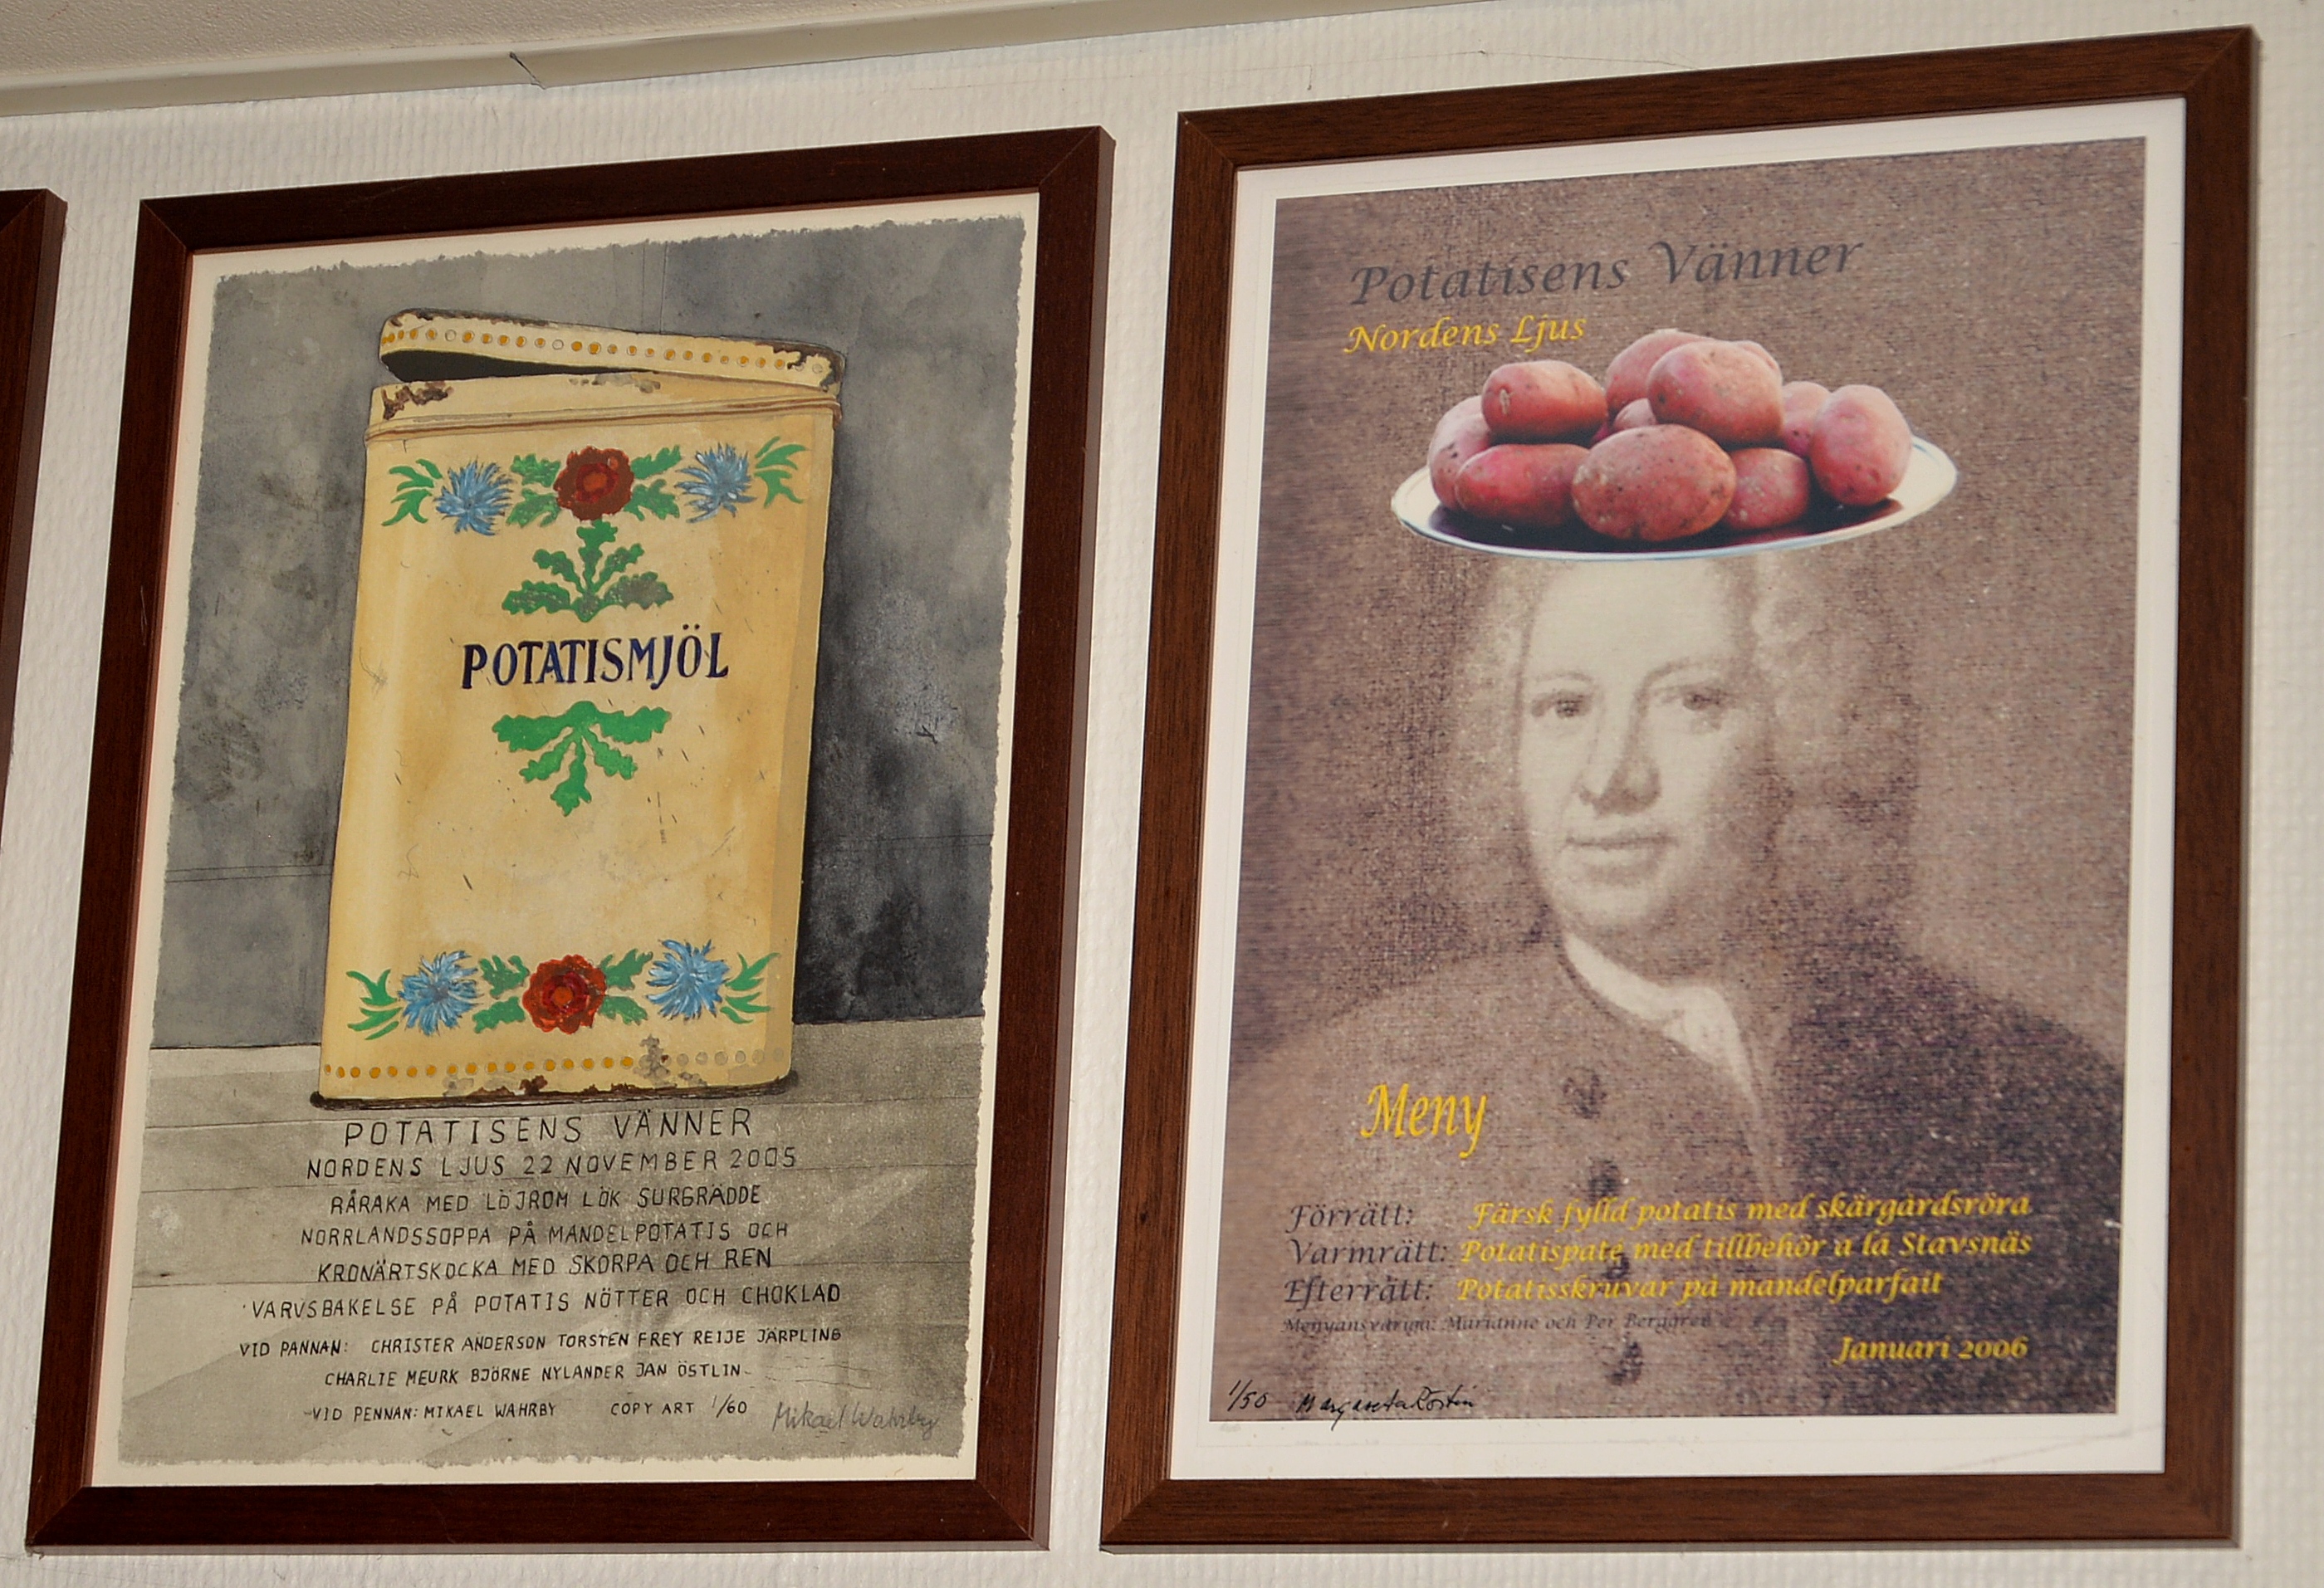 POTATISMJÖL
POTATISENS VÄNNER
NORDENS LJUS 22 NOVEMBER 2005
RÅRAKA MED LÖJROM LÖK SURGRÄDDE
NORRLANDSSOPPA PÅ MANDELPOTATIS OCH
KRONÄRTSKOCKA MED SKORPA OCH REN
VARVSBAKELSE PÅ POTATIS NÖTTER OCH CHOKLAD
VID PANNAN: CHRISTER ANDERSON TORSTEN FREY REIJE JÄRPLING
CHARLIE MEURK BJÖRNE NYLANDER JAN ÖSTLIN
VID PENNAN: MIKAEL WAHRBY COPY ART 1/60 Mikael Wahrby
Potatisens Vänner
Nordens Ljus
Meny
Förrätt: Färsk fylld potatis med skärgårdsröra
Varmrätt: Potatispaté med tillbehör a lá Stavsnäs
Efterrätt: Potatisskruvar på mandelparfait
Menyansvariga: Marianne och Per Berggren
Januari 2006
1/50 Margareta Östlin